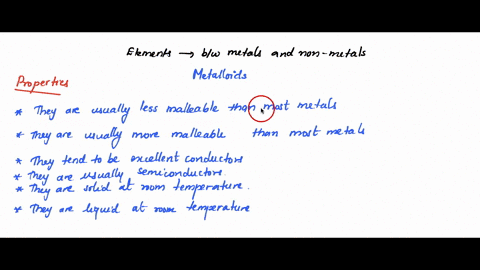 Elements → b/w metals and non-metals
Metalloids
Properties
* They are usually less malleable than most metals
* They are usually more malleable than most metals
* They tend to be excellent conductors
* They are usually semiconductors.
* They are solid at room temperature.
* They are liquid at room temperature